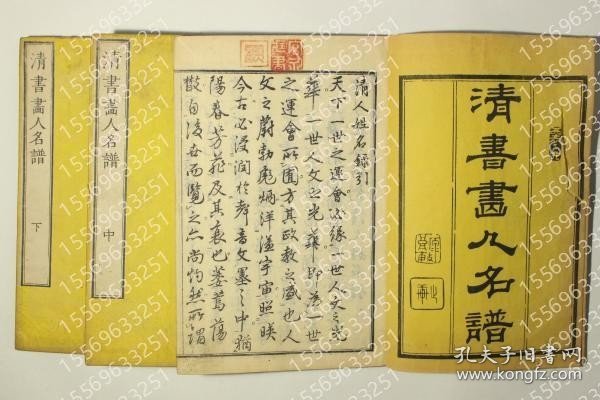 清書畫人名譜
清人姓名錄引
天下一世之運會必緣一世人文之光
華一世人文之光華即為一世
之運會所囿方其政教之盛也人
文之蔚勃彪炳洋溢宇宙照暎
今古必浸润於聲音文墨之中猶
陽春芳菲及其衰也萎蔫蕩
散自後世而覽之亦尚灼然所謂
清書畫人名譜
中
清書畫人名譜
下
孔夫子旧书网
www.kongfz.com
15569633251